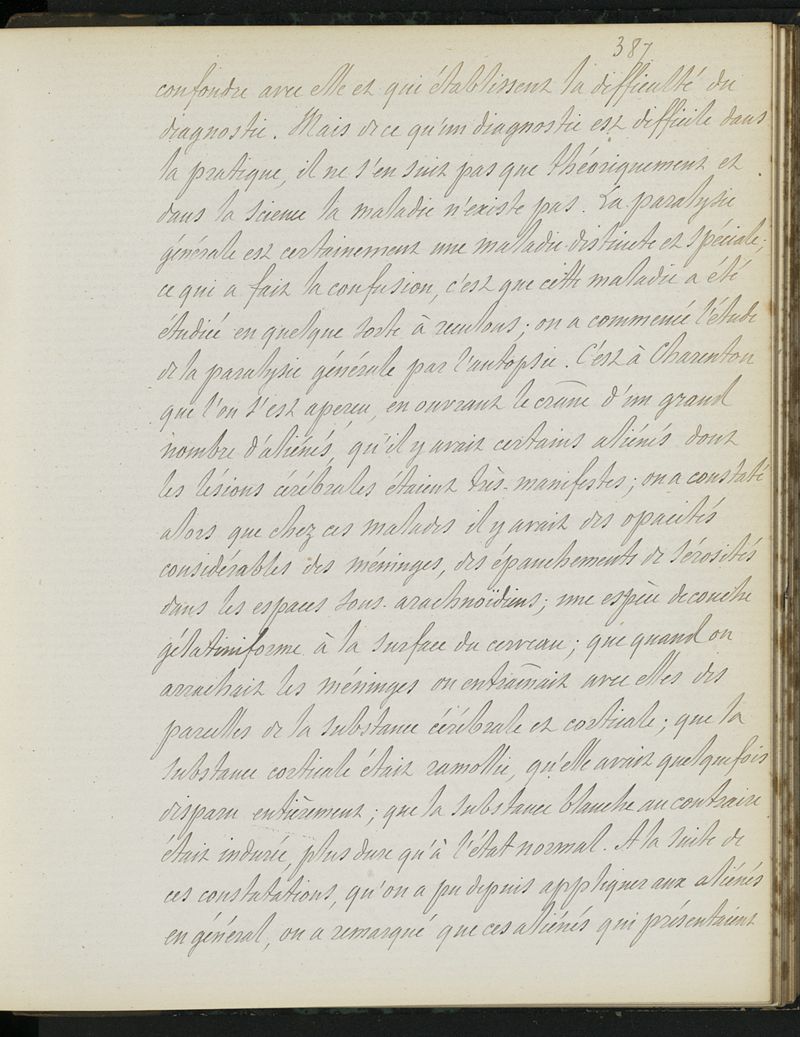 387
confondre avec elle et qui établissent la difficulté du
diagnostic. Mais de ce qu'un diagnostic est difficile dans
la pratique, il ne s'en suit pas que théoriquement et
dans la science la maladie n'existe pas. La paralysie
générale est certainement une maladie distincte et spéciale;
ce qui a fait la confusion, c'est que cette maladie a été
étudiée en quelque sorte à reculons; on a commencé l'étude
de la paralysie générale par l'autopsie. C'est à Charenton
que l'on s'est aperçu, en ouvrant le crâne d'un grand
nombre d'aliénés, qu'il y avait certains aliénés dont
les lésions cérébrales étaient très-manifestes; on a constaté
alors que chez ces malades il y avait des opacités
considérables des méninges, des épanchements de sérosités
dans les espaces sous-arachnoïdiens; une espèce de couche
gélatiniforme à la surface du cerveau; que quand on
arrachait les méninges on entraînait avec elles des
parcelles de la substance cérébrale et corticale; que la
substance corticale était ramollie, qu'elle avait quelquefois
disparu entièrement; que la substance blanche au contraire
était indurée, plus dure qu'à l'état normal. A la suite de
ces constatations, qu'on a pu depuis appliquer aux aliénés
en général, on a remarqué que ces aliénés qui présentaient